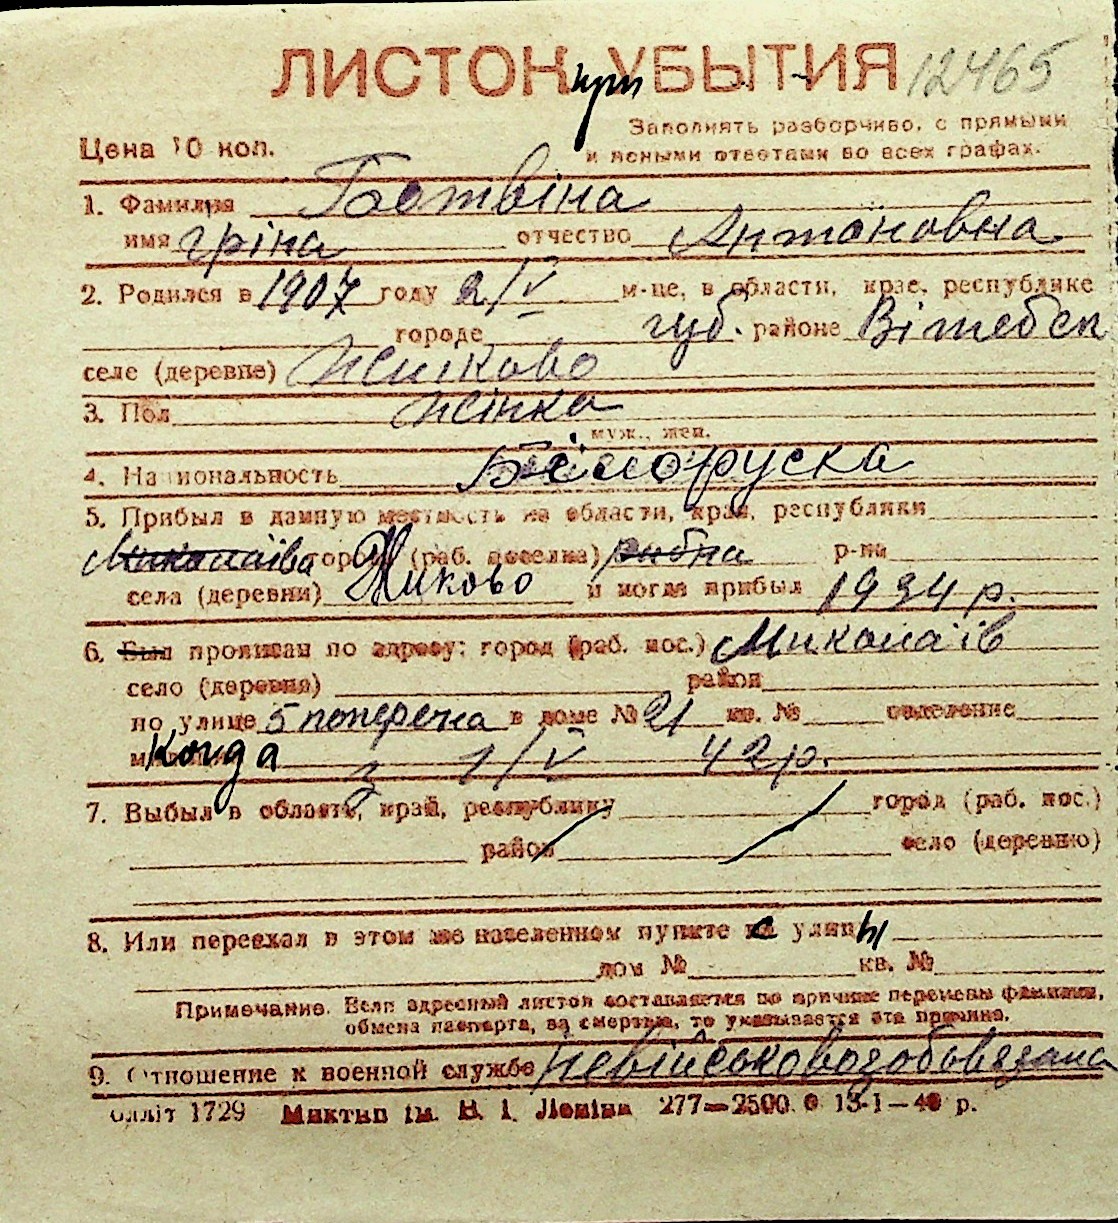 ЛИСТОК при УБЫТИЯ 12465
Цена 10 коп.
Заполнять разборчиво, с прямыми
и ясными ответами во всех графах.
1. Фамилия Ботвіна
имя Іріна отчество Антоновна
2. Родился в 1907 году 2/V м-це, в области, крае, республике
городе губ. районе Вітебск
селе (деревне)
3. Пол жінка
муж., жен.
4. Национальность Білоруска
5. Прибыл в данную местность из области, края, республики
Миколаїва города (раб. поселка) р-на
села (деревни) и когда прибыл 1934 р.
6. Был прописан по адресу: город (раб. пос.) Миколаїв
село (деревня) район
по улице 5 поперечна в доме № 21 кв. № отделение
Когда з 1/V 42 р.
7. Выбыл в область, край, республику город (раб. пос.)
район село (деревню)
8. Или переехал в этом же населенном пункте с улицы
дом № кв. №
Примечание. Если адресный листок составляется по причине перемены фамилии,
обмена паспорта, за смертью, то указывается эта причина.
9. Отношение к военной службе невійськовозобовязана
Олліт 1729 Миктип ім. В. І. Леніна 277—2500 13-I—40 р.